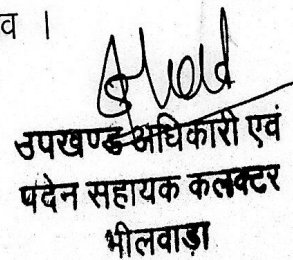 व ।
उपखण्ड अधिकारी एवं
पदेन सहायक कलक्टर
भीलवाड़ा